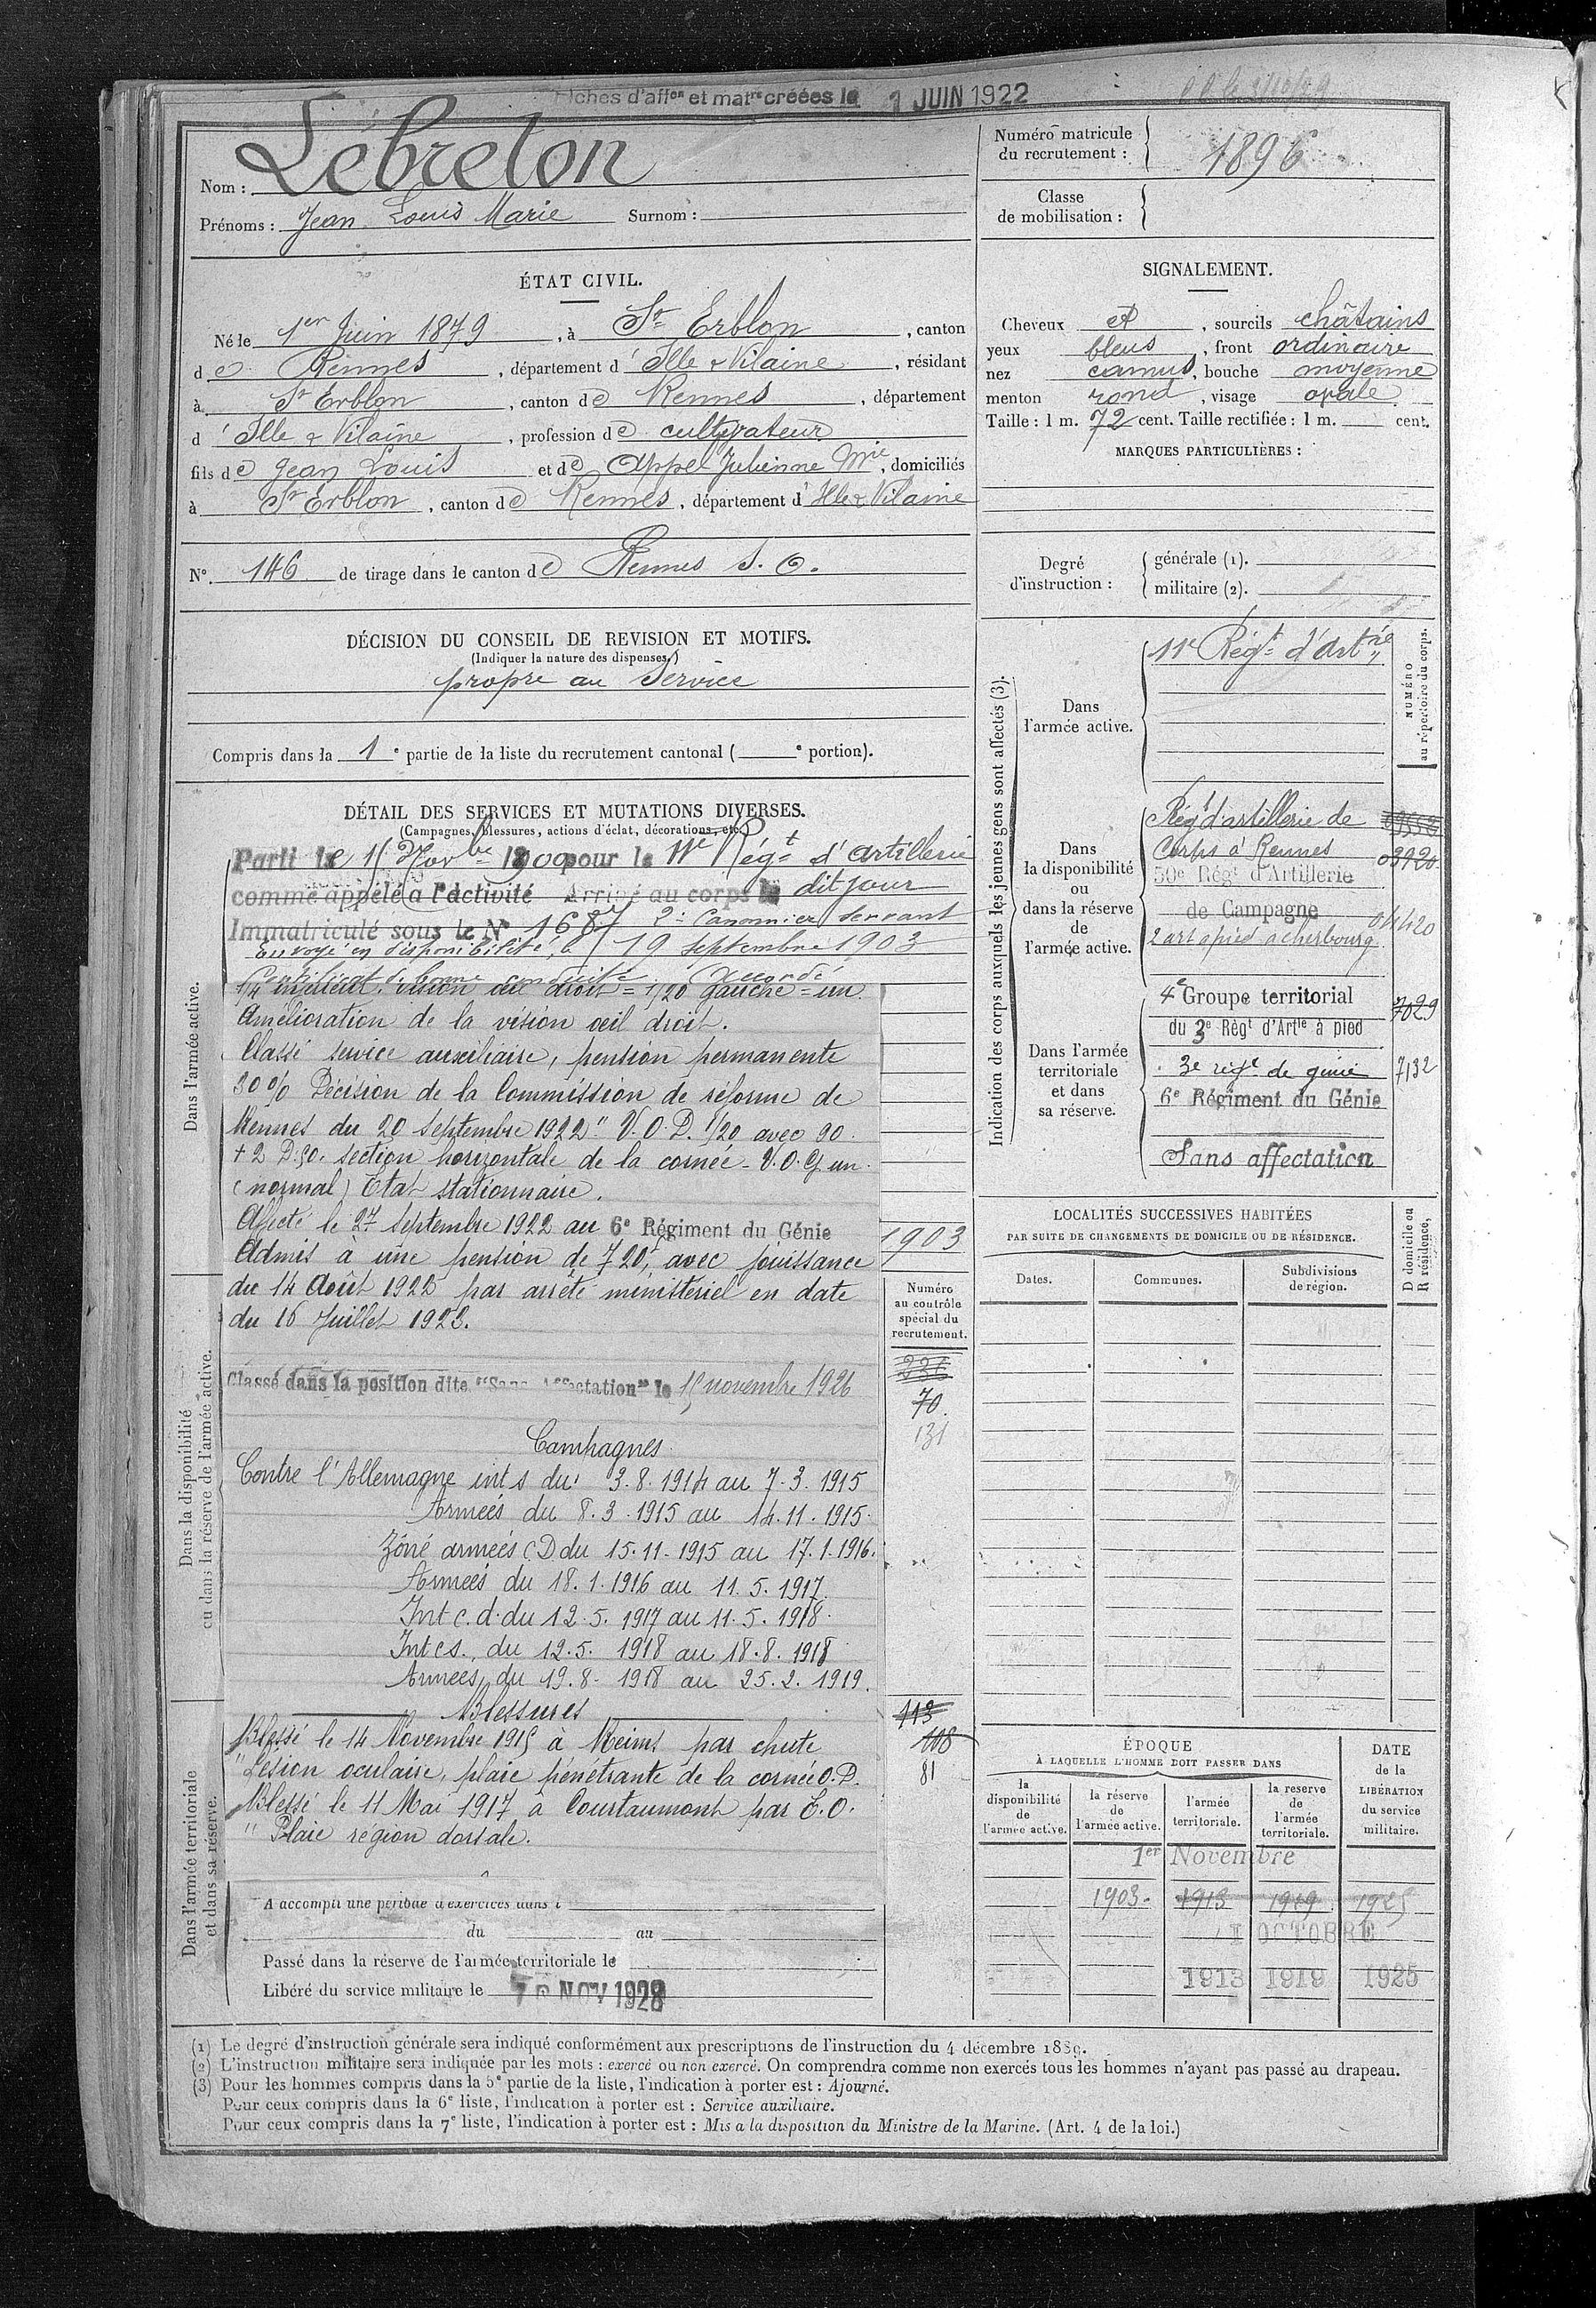 Fiches d'affon et matre créées le 1 JUIN 1922
Nom : Lebreton
Prénoms : Jean Louis Marie Surnom :
Numéro matricule du recrutement : 1896
Classe de mobilisation :
ÉTAT CIVIL.
Né le 1er Juin 1879, à St Erblon, canton
de Rennes, département d'Ille & Vilaine, résidant
à St Erblon, canton de Rennes, département
d'Ille & Vilaine, profession de cultivateur
fils de Jean Louis et de Appel Julienne Mie, domiciliés
à St Erblon, canton de Rennes, département d'Ille & Vilaine
N°. 146 de tirage dans le canton de Rennes S. O.
SIGNALEMENT.
Cheveux et, sourcils châtains
yeux bleus, front ordinaire
nez camus, bouche moyenne
menton rond, visage ovale
Taille : 1 m. 72 cent. Taille rectifiée : 1 m. cent.
MARQUES PARTICULIÈRES :
Degré d'instruction :
générale (1).
militaire (2).
DÉCISION DU CONSEIL DE REVISION ET MOTIFS.
(Indiquer la nature des dispenses.)
propre au service
Compris dans la 1e partie de la liste du recrutement cantonal ( e portion).
DÉTAIL DES SERVICES ET MUTATIONS DIVERSES.
(Campagnes, blessures, actions d'éclat, décorations, etc.)
Parti le 15 Novbe 1900 pour le 11e Régt d'Artillerie
comme appelé à l'activité Arrivé au corps le dit jour
Immatriculé sous le N° 1687 2e Canonnier servant
Envoyé en disponibilité, le 19 septembre 1903
Certificat de bonne conduite accordé
vision œil droit = 1/20 gauche = un
Amélioration de la vision œil droit.
Classé service auxiliaire, pension permanente
30% Décision de la Commission de réforme de
Rennes du 20 septembre 1922 " V.O.D. 1/20 avec 90.
+ 2 D.50. section horizontale de la cornée - V.O.G un
(normal) Etat stationnaire.
Affecté le 27 septembre 1922 au 6e Régiment du Génie
Admis à une pension de 720f, avec jouissance
du 14 Août 1922 par arrêté ministériel en date
du 16 Juillet 1923.
Classé dans la position dite "Sans Affectation" le 15 novembre 1926
Campagnes
Contre l'Allemagne int s du 3.8.1914 au 7.3.1915
Armées du 8.3.1915 au 14.11.1915
Zône armées CD du 15.11.1915 au 17.1.1916.
Armées du 18.1.1916 au 11.5.1917.
Int c.d. du 12.5.1917 au 11.5.1918.
Int cs. du 12.5.1918 au 18.8.1918
Armées du 19.8.1918 au 25.2.1919.
Blessures
Blessé le 14 Novembre 1915 à Reims par chute
"Lésion oculaire, plaie pénétrante de la cornée O.D.
Blessé le 11 Mai 1917 à Courtaumont par E.O.
" Plaie région dorsale.
A accompli une période d'exercices dans l
du au
Passé dans la réserve de l'armée territoriale le
Libéré du service militaire le NOV 1928
Dans l'armée active.
Dans la disponibilité ou dans la réserve de l'armée active.
Dans l'armée territoriale et dans sa réserve.
1903
Numéro au contrôle spécial du recrutement.
70
131
113
108
81
Indication des corps auxquels les jeunes gens sont affectés (3).
NUMÉRO au répertoire du corps.
Dans l'armée active.
11e Régt d'Artrie
Dans la disponibilité ou dans la réserve de l'armée active.
Régt d'artillerie de
Corps à Rennes 03920
50e Régt d'Artillerie
de Campagne 04420
2 art à pied à cherbourg
Dans l'armée territoriale et dans sa réserve.
4e Groupe territorial 7029
du 3e Régt d'Artie à pied
3e régt de génie 7132
6e Régiment du Génie
Sans affectation
LOCALITÉS SUCCESSIVES HABITÉES
PAR SUITE DE CHANGEMENTS DE DOMICILE OU DE RÉSIDENCE.
Dates. Communes. Subdivisions de région. D domicile ou R résidence.
ÉPOQUE
À LAQUELLE L'HOMME DOIT PASSER DANS
la disponibilité de l'armée active.
la réserve de l'armée active.
l'armée territoriale.
la reserve de l'armée territoriale.
DATE de la LIBÉRATION du service militaire.
1er Novembre
1903 1913 1919 1925
1 OCTOBRE
1913 1919 1925
(1) Le degré d'instruction générale sera indiqué conformément aux prescriptions de l'instruction du 4 décembre 1889.
(2) L'instruction militaire sera indiquée par les mots : exercé ou non exercé. On comprendra comme non exercés tous les hommes n'ayant pas passé au drapeau.
(3) Pour les hommes compris dans la 5e partie de la liste, l'indication à porter est : Ajourné.
Pour ceux compris dans la 6e liste, l'indication à porter est : Service auxiliaire.
Pour ceux compris dans la 7e liste, l'indication à porter est : Mis a la disposition du Ministre de la Marine. (Art. 4 de la loi.)